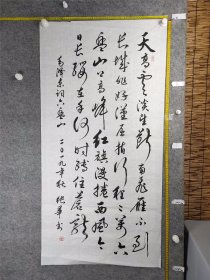 天高雲淡望断南飛雁不到
长城非好漢屈指行程二万六
盘山上高峰红旗漫捲西風今
日长缨在手何时缚住蒼龍
毛泽东词六盘山 二〇一九年秋 书